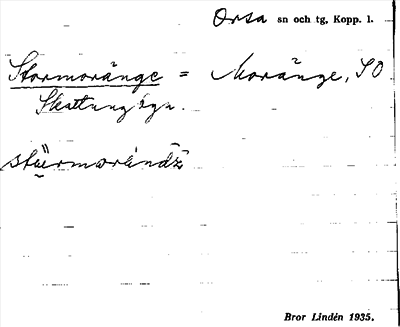 Orsa sn och tg, Kopp. l.
Stormoränge = Moränge, SO
Skattungbyn.
Bror Lindén 1935.